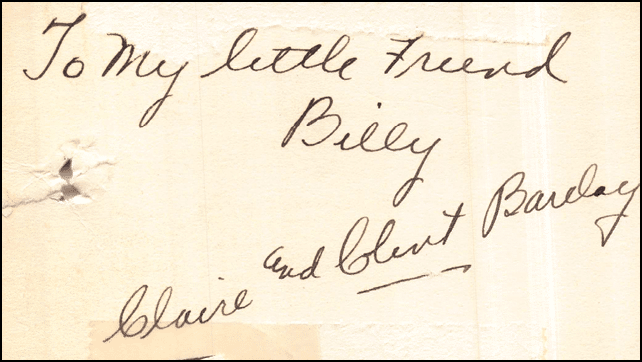 To My little Friend
Billy
Claire and Clint Barclay